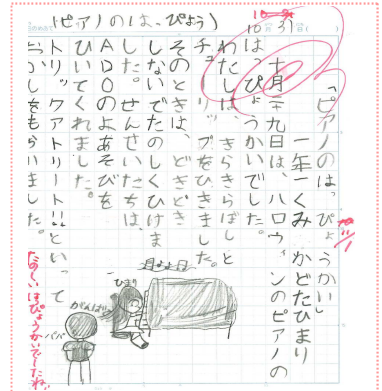 (ピアノのはっぴょう)
10 31
「ピアノのはっぴょうかい」
一年一くみ かどたひまり
十月二十九日は、ハロウィンのピアノの
はっぴょうかいでした。
わたしは、きらきらぼしと
チューリップをひきました。
そのときは、どきどき
しないでたのしくひけま
した。せんせいたちは、
ADOのよあそびを
ひいてくれました。
トリックアトリート!!といって
おかしをもらいました。
月よう日
ひまり
がんばれ
パパ
たのしいはっぴょうかいでしたね。